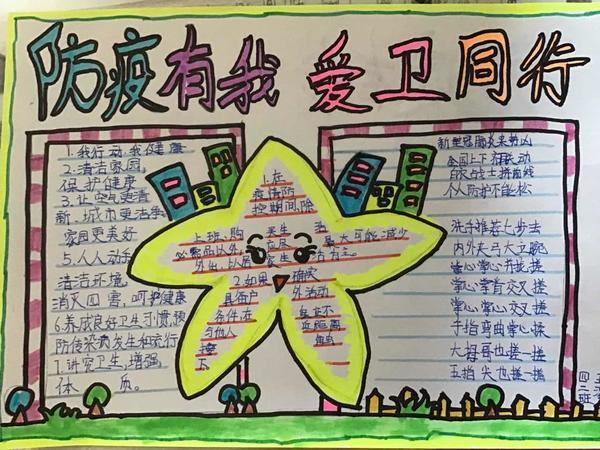 防疫有我 爱卫同行
1.我行动我健康
2.清洁家园,
保护健康
3.让空气更清
新,城市更洁净
家园更美好
5.人人动手
清洁环境
消灭四害,呵护健康
6.养成良好卫生习惯,预
防传染病发生和流行
7.讲究卫生,增强
体 质。
1.在
疫情防
控期间,除
上班、购 买生
必需品以外, 应尽 最大可能减少
外出,以居 家生 活为主。
2.如果 确实
具备户 外活动
条件,在
与他人
新型冠肺炎来势凶
全国上下
个人防护不能松
洗手推荐七步走
内外夹弓大立腕
掌心掌心并拢搓
掌心掌背交叉搓
掌心掌心交叉搓
手指弯曲掌心揉
大拇哥也搓一搓
五指尖也搓一搓
四
二
班